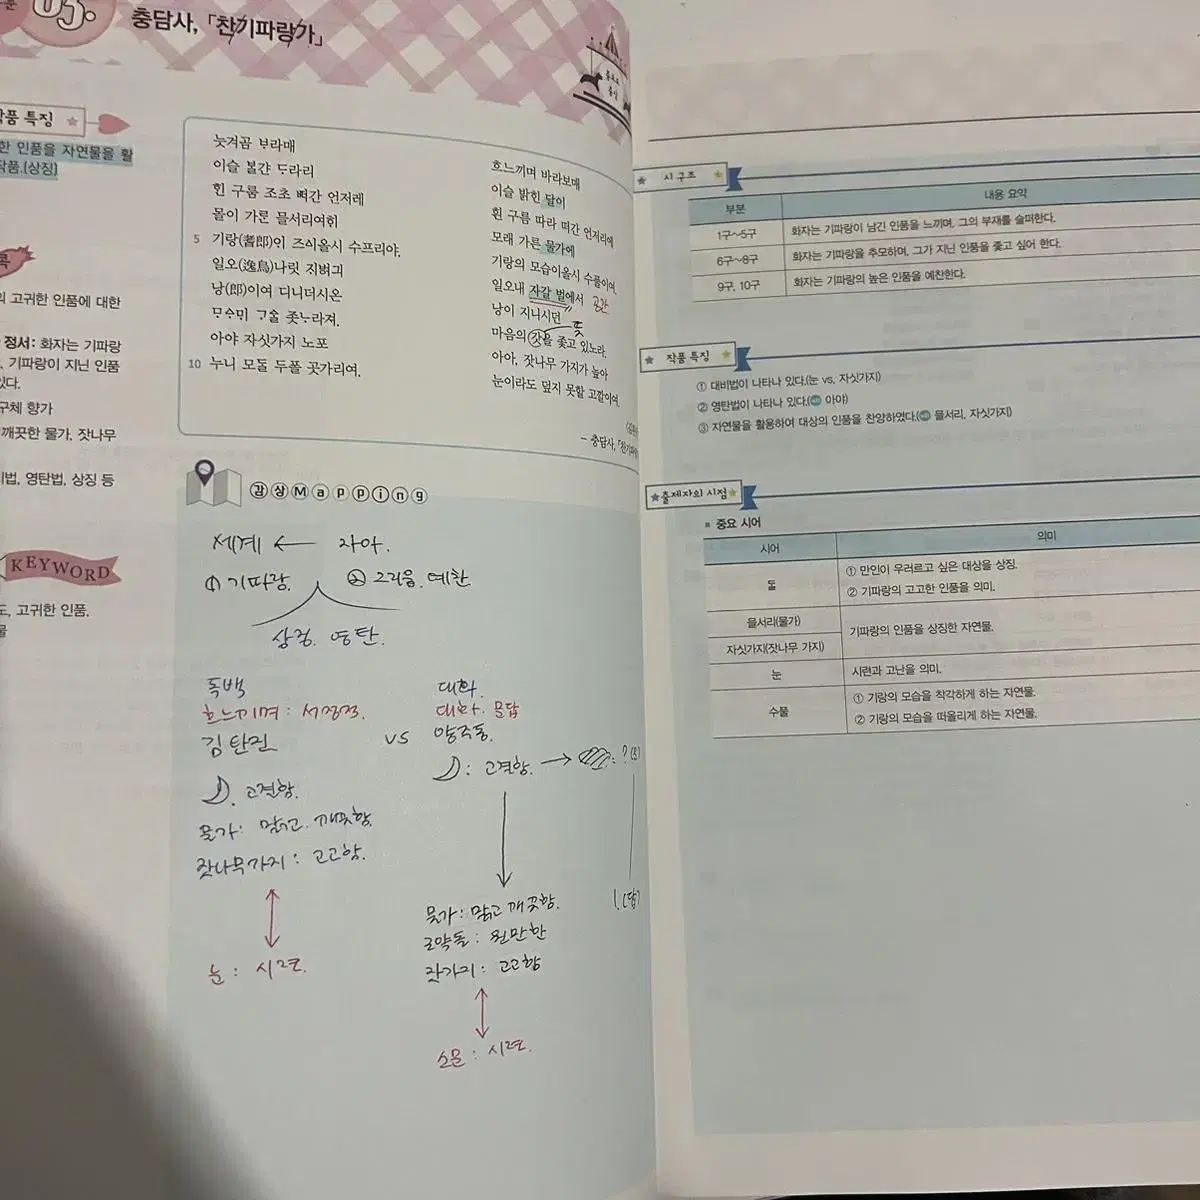 05.
충담사, 「찬기파랑가」
작품 특징
한 인품을 자연물을 활
작품.(상징)
고귀한 인품에 대한
정서: 화자는 기파랑
기파랑이 지닌 인품
있다.
구체 향가
깨끗한 물가, 잣나무
영탄법, 상징 등
KEYWORD
고귀한 인품.
늣겨곰 ᄇᆞ라매
이슬 ᄇᆞᆯ갼 ᄃᆞ라리
힌 구룸 조초 ᄠᅥ간 언저레
몰이 가ᄅᆞᆫ 믈서리여히
5 기랑(耆郎)이 즈ᅀᅵ올시 수프리야.
일오(逸烏)나릿 ᄌᆡᄇᆞ긔
낭(郎)이여 디니더시온
ᄆᆞᅀᆞᄆᆡ ᄀᆞᅀᆞᆯ 좃ᄂᆞ라져.
아야 자싯가지 노포
10 누니 모ᄃᆞᆯ 두폴 곳가리여.
흐느끼며 바라보매
이슬 밝힌 달이
흰 구름 따라 떠간 언저리에
모래 가른 물가에
기랑의 모습이올시 수풀이여.
일오내 자갈 벌에서 공간
낭이 지니시던
뜻
마음의 갓을 좇고 있노라.
아아, 잣나무 가지가 높아
눈이라도 덮지 못할 고깔이여.
- 충담사, 「찬기파랑
감상Mapping
세계 ← 자아.
① 기파랑. ② 그리움. 예찬
상징. 영탄.
독백
흐느끼며 : 서정적.
김완진
고결함.
물가: 맑고. 깨끗함.
잣나무가지: 고고함.
눈: 시련.
vs
대화.
대화. 문답
양주동.
: 고결함. → : ? (문)
물가: 맑고 깨끗함. ! (답)
조약돌: 원만한
잣가지: 고고함
서리: 시련.
시 구조
부분 내용 요약
1구~5구 화자는 기파랑이 남긴 인품을 느끼며, 그의 부재를 슬퍼한다.
6구~8구 화자는 기파랑을 추모하며, 그가 지닌 인품을 좇고 싶어 한다.
9구, 10구 화자는 기파랑의 높은 인품을 예찬한다.
작품 특징
① 대비법이 나타나 있다.(눈 vs. 자싯가지)
② 영탄법이 나타나 있다.( 아야)
③ 자연물을 활용하여 대상의 인품을 찬양하였다.( 믈서리, 자싯가지)
출제자의 시점
» 중요 시어
시어 의미
ᄃᆞᆯ ① 만인이 우러르고 싶은 대상을 상징.
② 기파랑의 고고한 인품을 의미.
믈서리(물가) 기파랑의 인품을 상징한 자연물.
자싯가지(잣나무 가지)
눈 시련과 고난을 의미.
수플 ① 기랑의 모습을 착각하게 하는 자연물.
② 기랑의 모습을 떠올리게 하는 자연물.